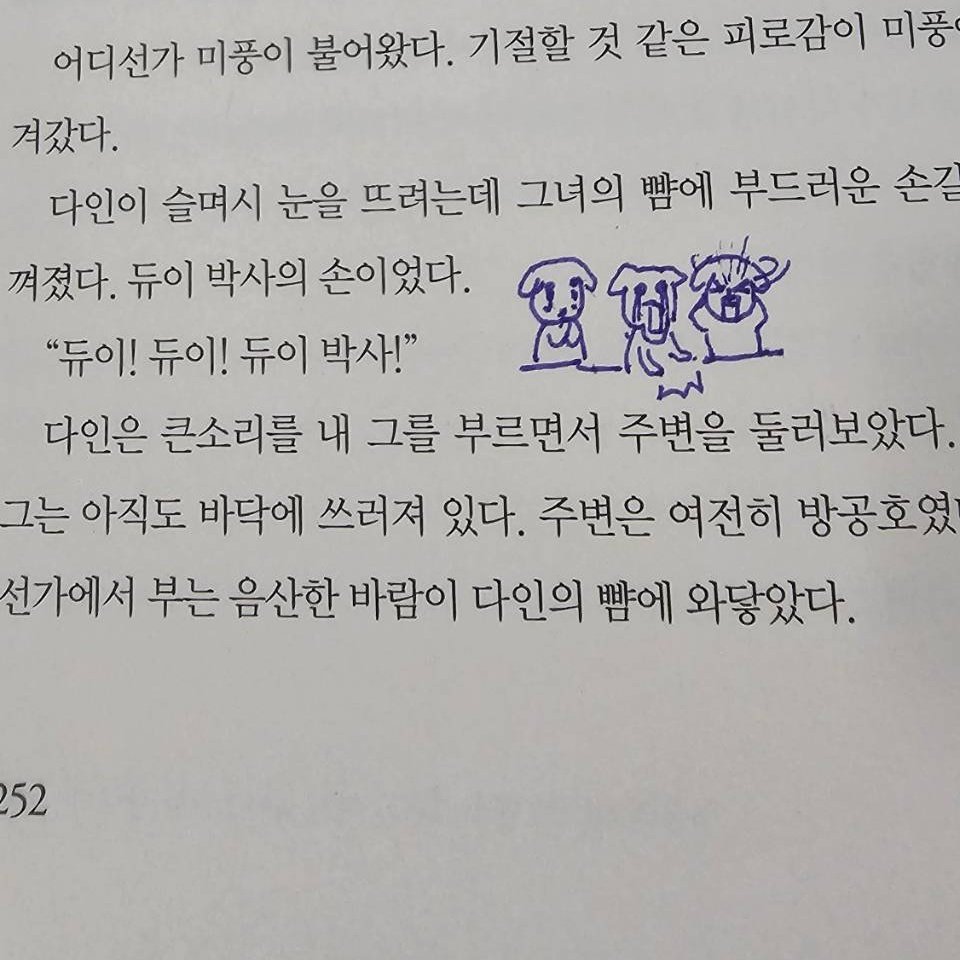 어디선가 미풍이 불어왔다. 기절할 것 같은 피로감이 미풍
겨갔다.
다인이 슬며시 눈을 뜨려는데 그녀의 뺨에 부드러운 손길
껴졌다. 듀이 박사의 손이었다.
“듀이! 듀이! 듀이 박사!”
다인은 큰소리를 내 그를 부르면서 주변을 둘러보았다.
그는 아직도 바닥에 쓰러져 있다. 주변은 여전히 방공호였
선가에서 부는 음산한 바람이 다인의 뺨에 와닿았다.
252